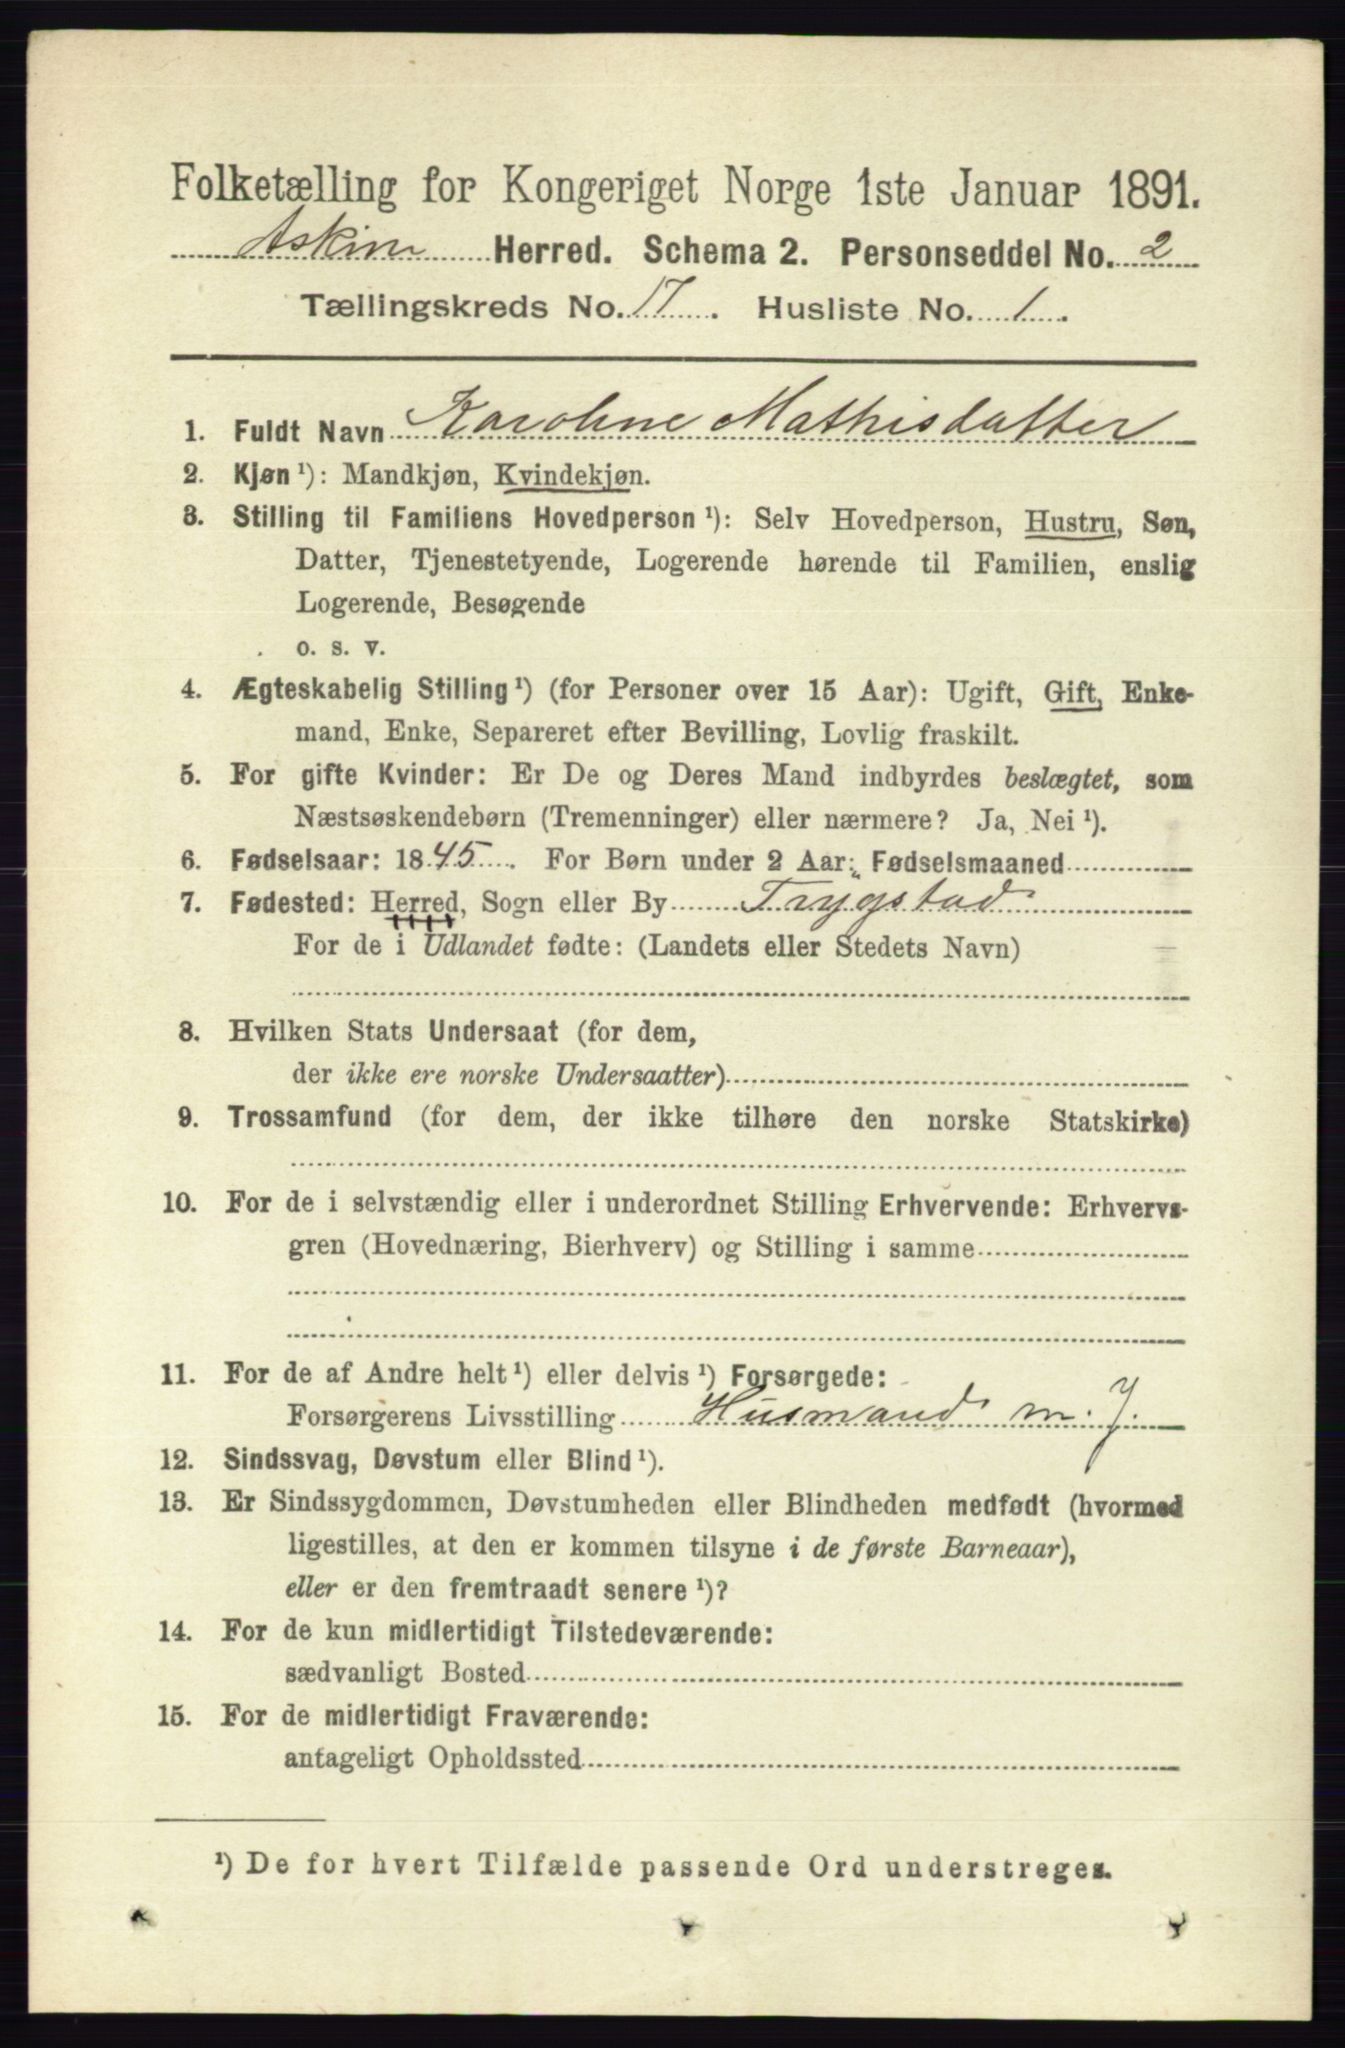 Folketælling for Kongeriget Norge 1ste Januar 1891.
Askim Herred. Schema 2. Personseddel No. 2
Tællingskreds No. 17. Husliste No. 1.
1. Fuldt Navn Karoline Mathisdatter
2. Kjøn ¹): Mandkjøn, Kvindekjøn.
3. Stilling til Familiens Hovedperson ¹): Selv Hovedperson, Hustru, Søn,
Datter, Tjenestetyende, Logerende hørende til Familien, enslig
Logerende, Besøgende
o. s. v.
4. Ægteskabelig Stilling ¹) (for Personer over 15 Aar): Ugift, Gift, Enke-
mand, Enke, Separeret efter Bevilling, Lovlig fraskilt.
5. For gifte Kvinder: Er De og Deres Mand indbyrdes beslægtet, som
Næstsøskendebørn (Tremenninger) eller nærmere? Ja, Nei ¹).
6. Fødselsaar: 1845. For Børn under 2 Aar: Fødselsmaaned
7. Fødested: Herred, Sogn eller By Trygstad
For de i Udlandet fødte: (Landets eller Stedets Navn)
8. Hvilken Stats Undersaat (for dem,
der ikke ere norske Undersaatter)
9. Trossamfund (for dem, der ikke tilhøre den norske Statskirke)
10. For de i selvstændig eller i underordnet Stilling Erhvervende: Erhvervs-
gren (Hovednæring, Bierhverv) og Stilling i samme
11. For de af Andre helt ¹) eller delvis ¹) Forsørgede:
Forsørgerens Livsstilling Husmand m. J.
12. Sindssvag, Døvstum eller Blind ¹).
13. Er Sindssygdommen, Døvstumheden eller Blindheden medfødt (hvormed
ligestilles, at den er kommen tilsyne i de første Barneaar),
eller er den fremtraadt senere ¹)?
14. For de kun midlertidigt Tilstedeværende:
sædvanligt Bosted
15. For de midlertidigt Fraværende:
antageligt Opholdssted
¹) De for hvert Tilfælde passende Ord understreges.